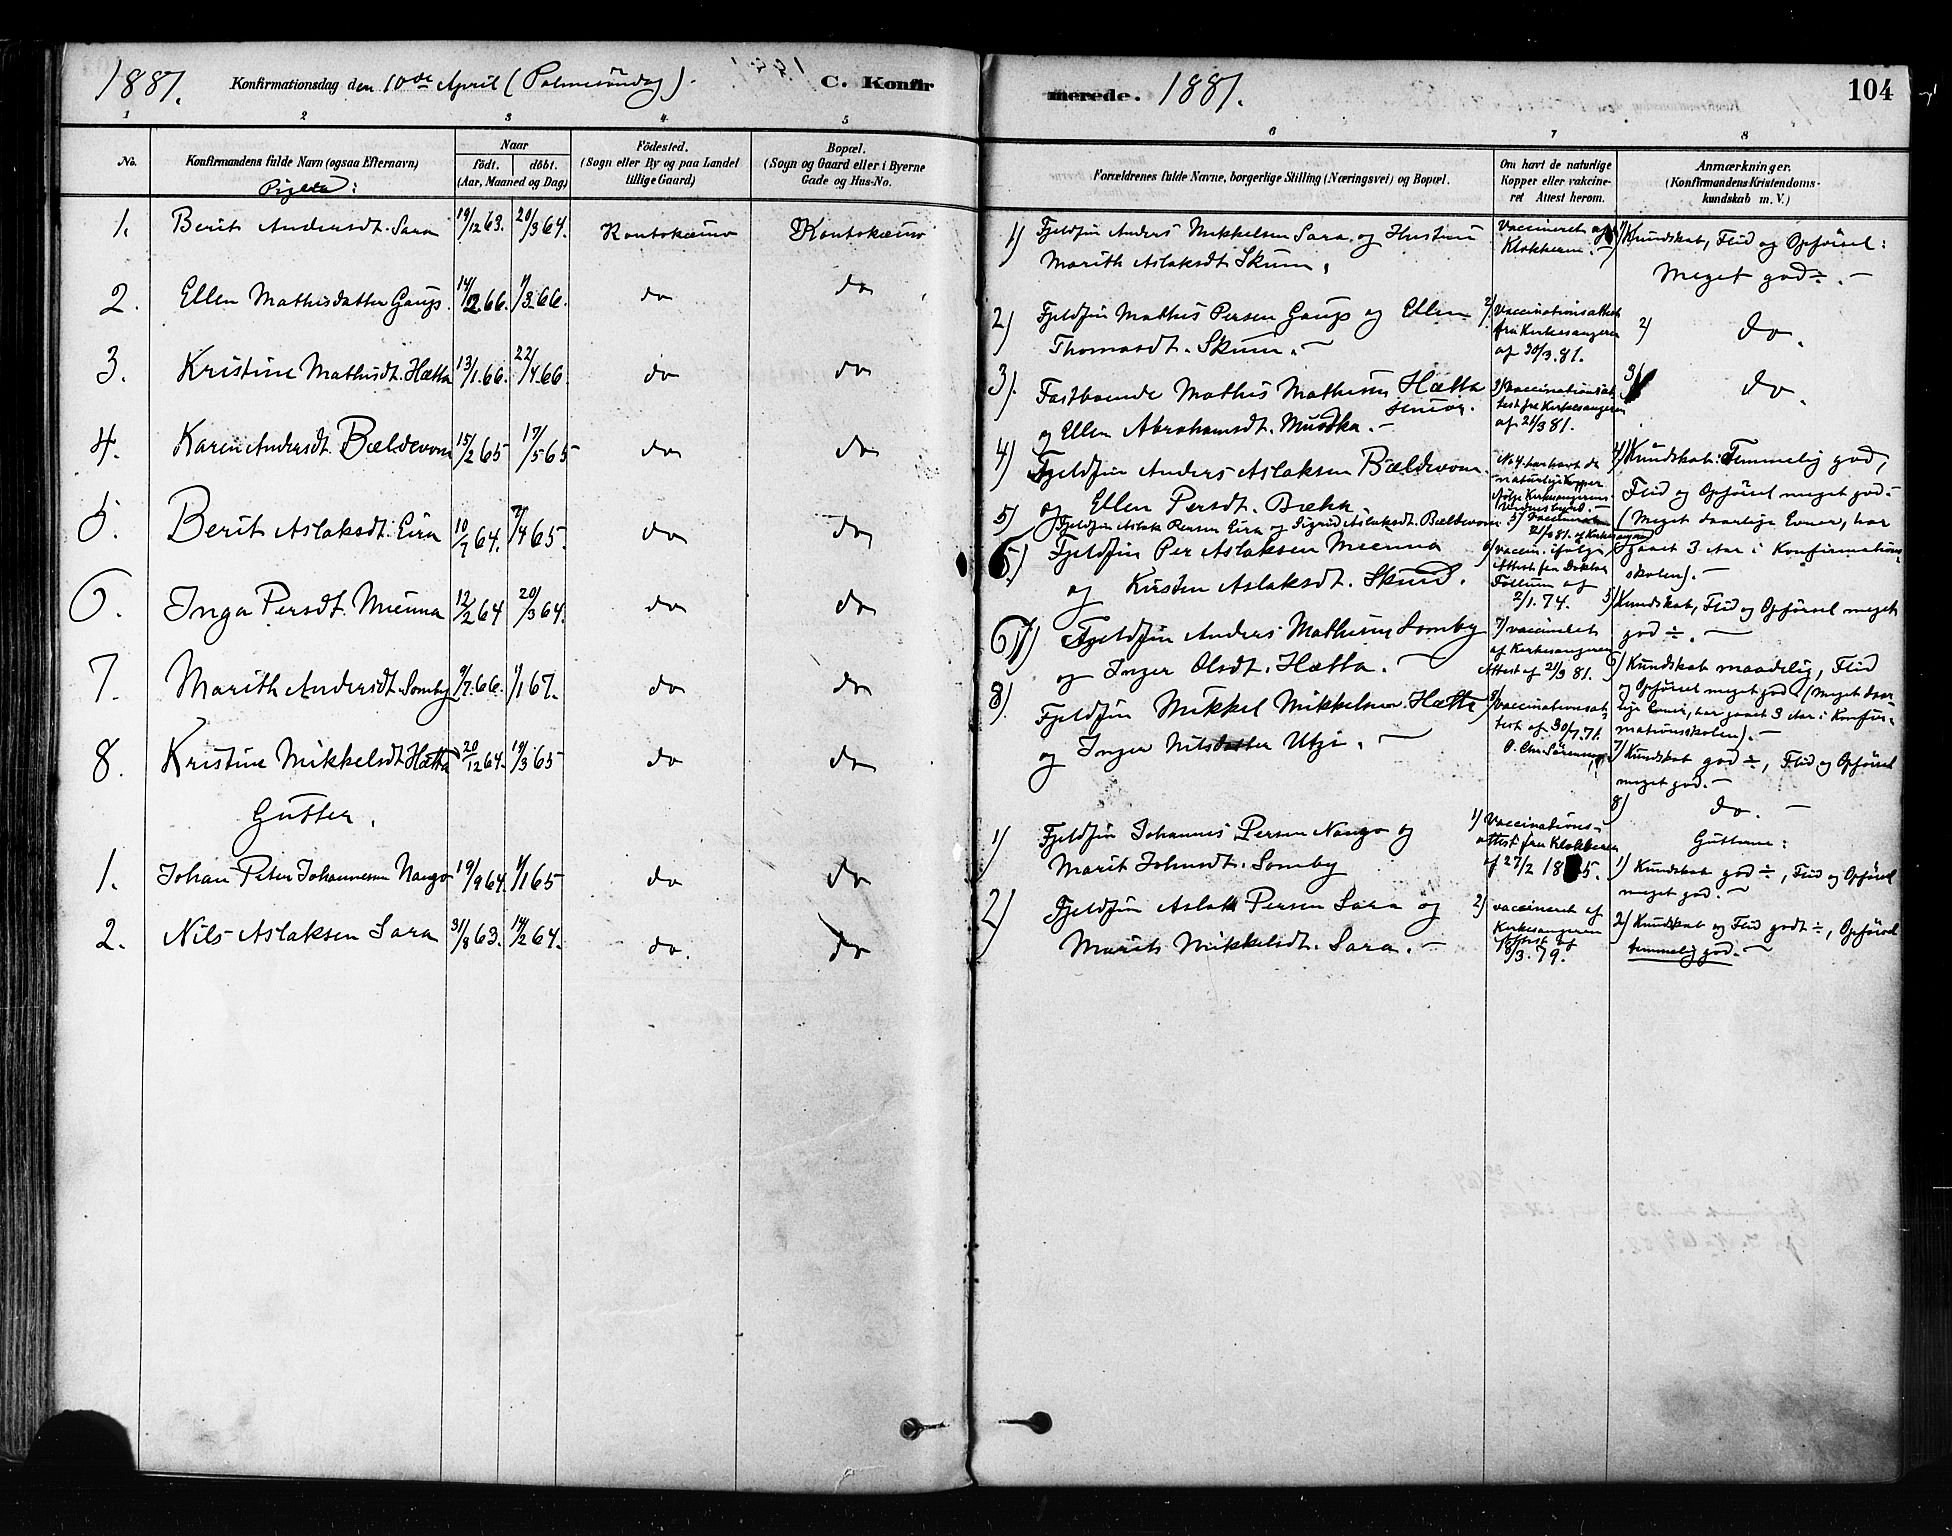 1881. Konfirmationsdag den 10de April (Palmesöndag). C. Konfir
merede. 1881. 104
1 2 3 4 5
6 7 8
No.
Konfirmandens fulde Navn (ogsaa Efternavn)
Naar
födt. döbt.
(Aar, Maaned og Dag)
Födested.
(Sogn eller By og paa Landet
tillige Gaard)
Bopæl.
(Sogn og Gaard eller i Byerne
Gade og Hus-No.
Forældrenes fulde Navne, borgerlige Stilling (Næringsvei) og Bopæl.
Om havt de naturlige
Kopper eller vakcine-
ret Attest herom.
Anmærkninger.
(Konfirmandens Kristendoms-
kundskab m. V.)
1. Berit Andersdt. Sara 19/12 63. 20/3 64. Koutokæino Koutokæino
2. Ellen Mathisdatter Gaup. 14/2 66. 1/3 66. do do
3. Kristine Mathisdt. Hætta 13/1. 66. 22/4. 66. do do
4. Karen Andersdt. Bældevom 15/2 65 17/5 65 do do
5. Berit Aslaksdt. Eira 10/7 64. /4 65. do do
6. Inga Persdt. Mienna 12/2 64 20/3 64. do do
7. Marith Andersdt. Somby 9/7. 66. 1/1 67. do do
8. Kristine Mikkelsdt. Hætta 20/12 64. 19/3 65 do do
Gutter.
1. Johan Peter Johannesen Nango 19/9 64. 1/1 65 do do
2. Nils Aslaksen Sara 31/8 63. 14/2 64. do. do
1) Fjeldfin Anders Mikkelsen Sara og Hustru
Marith Aslaksdt. Skum.
2) Fjeldfin Mathis Persen Gaup og Ellen
Thomasdt. Skum. —
3). Fastboende Mathis Mathisen Hætta
senior.
og Ellen Abrahamsdt. Muodka. —
4) Fjeldfin Anders Aslaksen Bældevom
og Ellen Persdt. Bæhr
5) Fjeldfin Aslak Persen Eira og Sigrid Aslaksdt. Bældevom
Fjeldfin Per Aslaksen Mienna
og Kirsten Aslaksdt. Skum.
7) Fjeldfin Anders Mathisen Somby
og Inger Olsdt. Hætta. —
8) Fjeldfin Mikkel Mikkelsen Hætta
og Inger Nilsdatter Utzi. —
1) Fjeldfin Johannes Persen Nango og
Marit Johnsdt. Somby
2) Fjeldfin Aslak Persen Sara og
Marit Mikkelsdt. Sara. —
Vaccineret af
Klokkeren. —
2) Vaccinationsattest
fra Kirkesangeren
af 30/3. 81.
3) Vaccinationsat-
test fra Kirkesangeren
af 21/3 81.
No 4. har havt de
naturlige Kopper
ifølge Kirkesangerens
5) Vaccineret
21/3 81. af Kirkesangeren
6) vaccin. ifølge
Attest fra Doktor
af
2/1. 74.
7) vaccineret
af Kirkesangeren
Attest af 21/3 81.
8) Vaccinationsat-
test af 30/7. 71.
O. Chr. Sörensen
1) Vaccinations-
attest fra Klokkeren
af 27/2 18 5.
2) vaccineret af
Kirkesangeren
Attest af
8/3. 79.
1) Kundskab, Flid og Opförsel:
Meget god ÷. —
2) do.
3) do.
4) Kundskab: Temmelig god,
Flid og Opförsel meget god. —
(Meget daarlige Evner, har
gaaet 3 Aar i Konfirmations-
skolen). —
5) Kundskab, Flid og Opförsel meget
god ÷. —
6) Kundskab maadelig, Flid
og Opförsel meget god (Meget daar-
lige Evner, har gaaet 3 Aar i Konfir-
mationsskolen). —
7) Kundskab god ÷, Flid og Opförsel
meget god. —
8) do. —
Gutterne:
1) Kundskab god ÷, Flid og Opförsel
meget god. —
2) Kundskab og Flid godt ÷, Opförsel
temmelig god. —